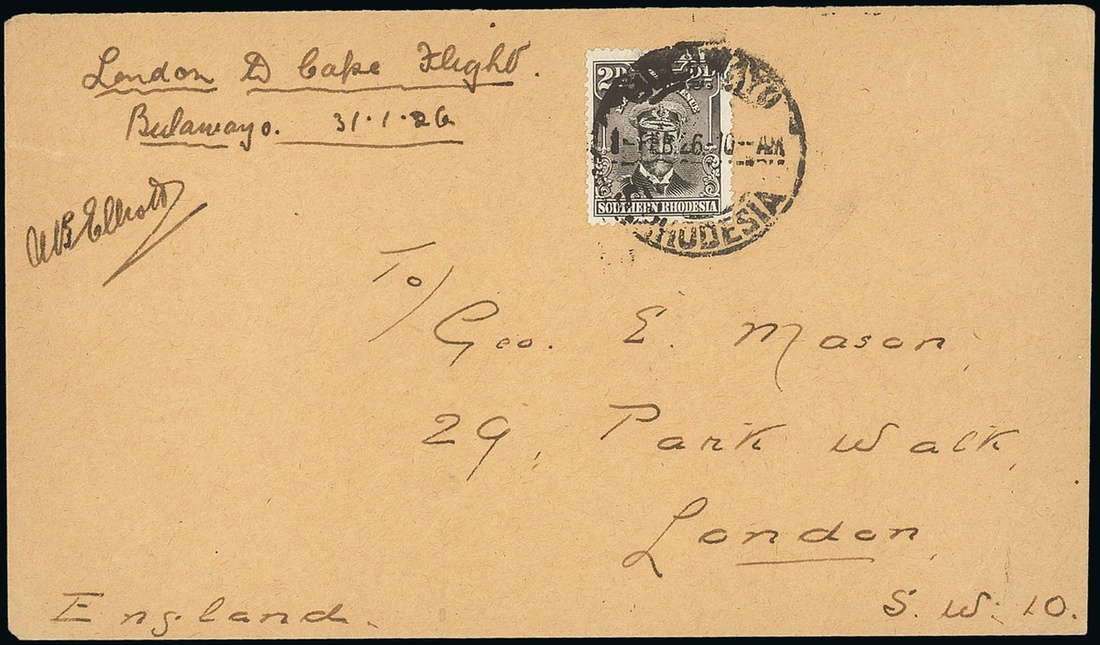 London To Cape Flight.
Bulawayo. 31.1.26
A B Elliott
2D 2D
SOUTHERN RHODESIA
1-FEB.26-10-AM
RHODESIA
To/
Geo. E. Mason
29, Park Walk,
London,
S. W. 10.
England.